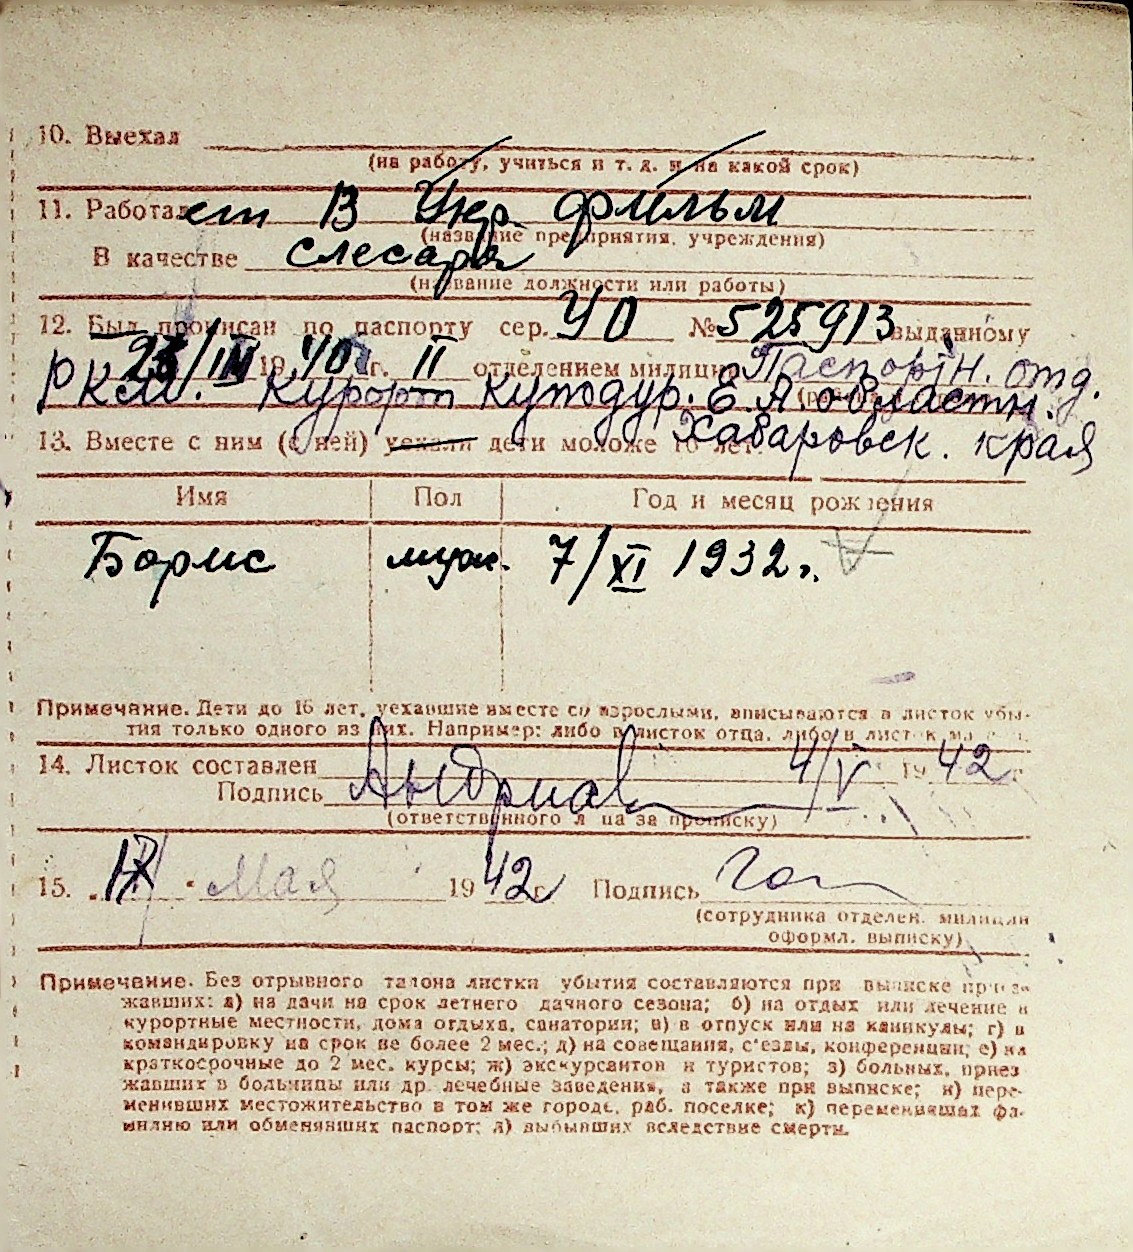 10. Выехал
(на работу, учиться и т. д. и на какой срок)
11. Работает В Укр. фильм
(название предприятия, учреждения)
В качестве слесаря
(название должности или работы)
12. Был прописан по паспорту сер. УО № 525913 выданному
19 40 г. II отделением милиции Паспортн. отд.
РКМ. Курорт Кульдур. Е.А. областн.
Хабаровск. края
13. Вместе с ним (с ней) уехали дети моложе 16 лет:
Имя Пол Год и месяц рождения
Борис муж. 7/XI 1932 г.
Примечание. Дети до 16 лет, уехавшие вместе со взрослыми, вписываются в листок убы-
тия только одного из них. Например: либо в листок отца, либо в листок
14. Листок составлен 4/V 1942 г.
Подпись
(ответственного лица за прописку)
15. Мая 1942 г. Подпись
(сотрудника отделен. милиции
оформл. выписку)
Примечание. Без отрывного талона листки убытия составляются при выписке приез-
жавших: а) на дачи на срок летнего дачного сезона; б) на отдых или лечение в
курортные местности, дома отдыха, санатории; в) в отпуск или на каникулы; г) в
командировку на срок не более 2 мес.; д) на совещания, с'езды, конференции; е) на
краткосрочные до 2 мес. курсы; ж) экскурсантов и туристов; з) больных, приез
жавших в больницы или др. лечебные заведения, а также при выписке; и) пере-
менивших местожительство в том же городе, раб. поселке; к) переменивших фа-
милию или обменявших паспорт; л) выбывших вследствие смерти.